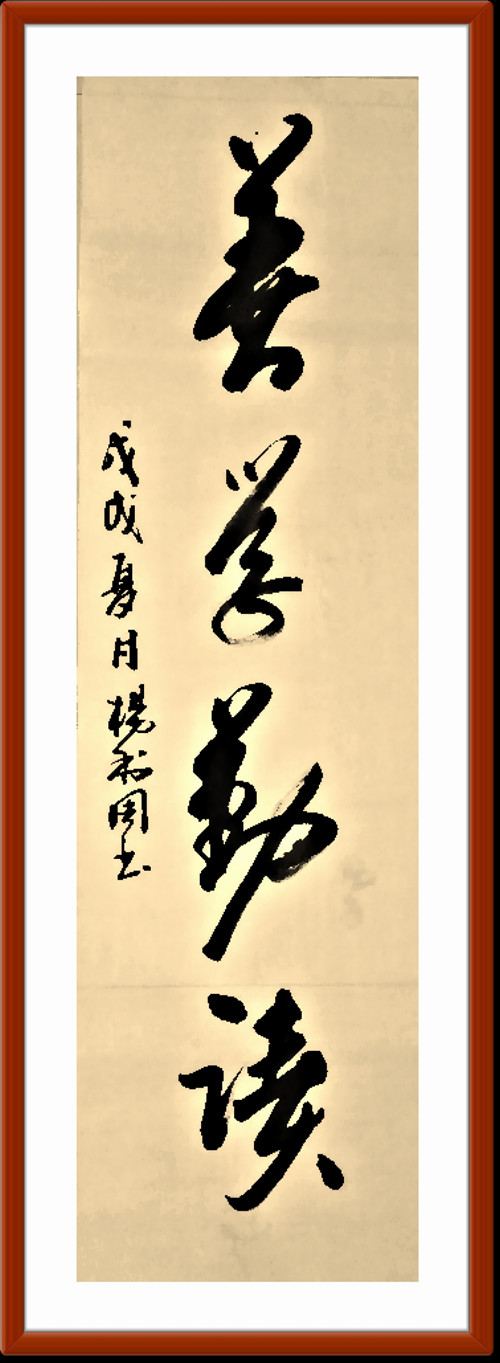 善学勤读
戊戌夏月楊利周书